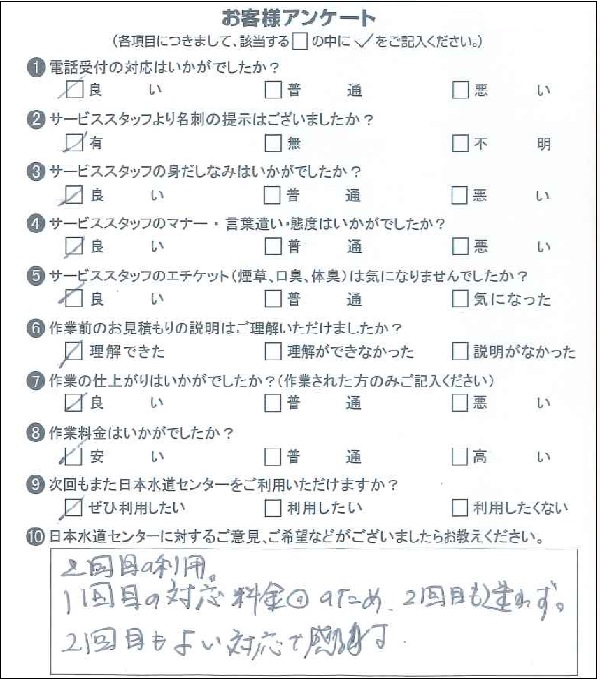 お客様アンケート
(各項目につきまして、該当する□の中に✓をご記入ください。)
❶電話受付の対応はいかがでしたか?
☑良い □普通 □悪い
❷サービススタッフより名刺の提示はございましたか?
☑有 □無 □不明
❸サービススタッフの身だしなみはいかがでしたか?
☑良い □普通 □悪い
❹サービススタッフのマナー・言葉遣い・態度はいかがでしたか?
☑良い □普通 □悪い
❺サービススタッフのエチケット(煙草、口臭、体臭)は気になりませんでしたか?
☑良い □普通 □気になった
❻作業前のお見積もりの説明はご理解いただけましたか?
☑理解できた □理解ができなかった □説明がなかった
❼作業の仕上がりはいかがでしたか?(作業された方のみご記入ください)
☑良い □普通 □悪い
❽作業料金はいかがでしたか?
☑安い □普通 □高い
❾次回もまた日本水道センターをご利用いただけますか?
☑ぜひ利用したい □利用したい □利用したくない
❿日本水道センターに対するご意見、ご希望などがございましたらお教えください。
2回目の利用。
1回目の対応 料金 のため、2回目も まわず。
2回目もよい対応で感謝す